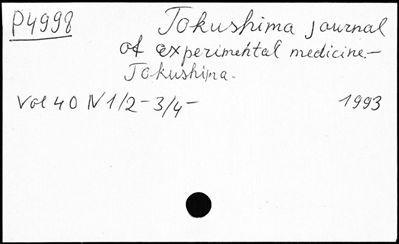 P4998
Tokushima journal
of experimental medicine.-
Tokushima.
Vol 40 N 1/2-3/4-
1993